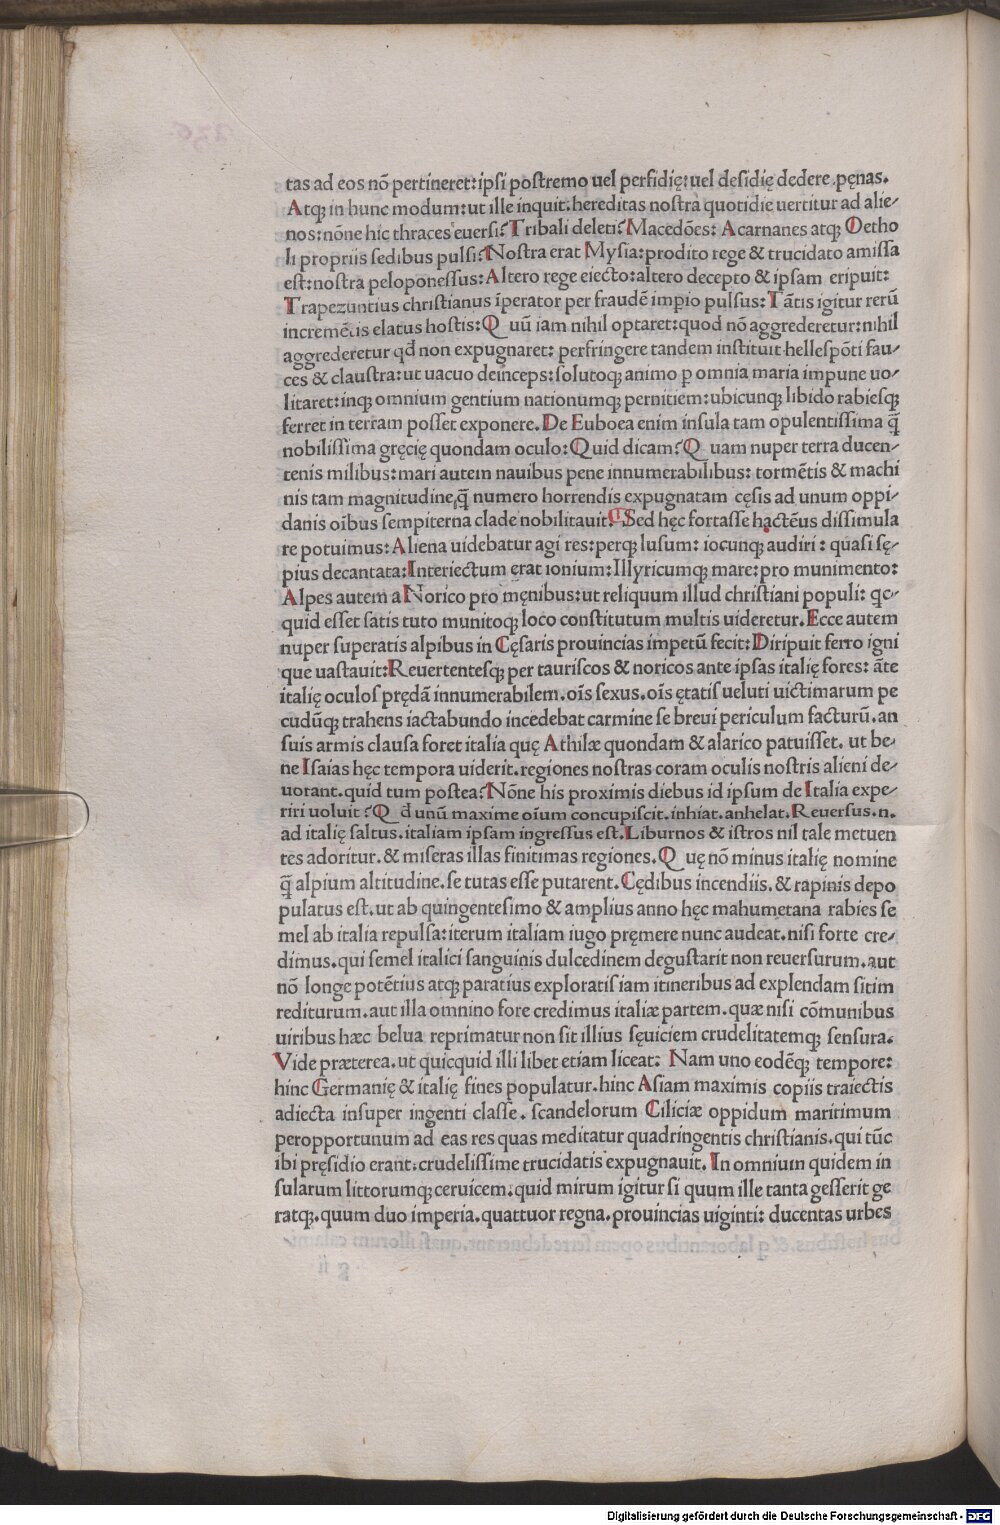 tas ad eos nõ pertineret: ipsi postremo uel perfidię: uel desidię dedere pęnas.
Atq; in hunc modum: ut ille inquit. hereditas nostra quotidie uertitur ad alie-
nos: nõne hic thraces euersi? Tribali deleti? Macedões: Acarnanes atq; Oetho
li propriis sedibus pulsi? Nostra erat Mysia: prodito rege & trucidato amissa
est: nostra peloponessus: Altero rege eiecto: altero decepto & ipsam eripuit:
Trapezuntius christianus ĩperator per fraudẽ impio pulsus: Tãtis igitur rerũ
incremẽtis elatus hostis: Q uũ iam nihil optaret: quod nõ aggrederetur: nihil
aggrederetur qđ non expugnaret: perfringere tandem instituit hellespõti fau-
ces & claustra: ut uacuo deinceps: solutoq; animo p omnia maria impune uo-
litaret: inq; omnium gentium nationumq; pernitiem: ubicunq; libido rabiesq;
ferret in terram posset exponere. De Euboea enim insula tam opulentissima q̃
nobilissima gręcię quondam oculo: Quid dicam? Q uam nuper terra ducen-
tenis milibus: mari autem nauibus pene innumerabilibus: tormẽtis & machi
nis tam magnitudine, q̃ numero horrendis expugnatam cęsis ad unum oppi-
danis oĩbus sempiterna clade nobilitauit. Sed hęc fortasse hactẽus dissimula
re potuimus: Aliena uidebatur agi res: perq; lusum: iocunq; audiri: quasi sę-
pius decantata: Interiectum erat ionium: Illyricumq; mare: pro munimento:
Alpes autem a Norico pro męnibus: ut reliquum illud christiani populi: qc-
quid esset satis tuto munitoq; loco constitutum multis uideretur. Ecce autem
nuper superatis alpibus in Cęsaris prouincias impetũ fecit: Diripuit ferro igni
que uastauit: Reuertentesq; per tauriscos & noricos ante ipsas italię fores: ãte
italię oculos prędã innumerabilem. oĩs sexus. oĩs ętatis ueluti uictimarum pe
cudũq; trahens iactabundo incedebat carmine se breui periculum facturũ. an
suis armis clausa foret italia quę Athilæ quondam & alarico patuisset. ut be-
ne Isaias hęc tempora uiderit. regiones nostras coram oculis nostris alieni de-
uorant. quid tum postea? Nõne his proximis diebus id ipsum de Italia expe-
riri uoluit? Q đ unũ maxime oĩum concupiscit. inhiat. anhelat. Reuersus .n.
ad italię saltus. italiam ipsam ingressus est. Liburnos & istros nil tale metuen
tes adoritur. & miseras illas finitimas regiones. Q uę nõ minus italię nomine
q̃ alpium altitudine. se tutas esse putarent. Cędibus incendiis. & rapinis depo
pulatus est. ut ab quingentesimo & amplius anno hęc mahumetana rabies se
mel ab italia repulsa: iterum italiam iugo pręmere nunc audeat. nisi forte cre-
dimus. qui semel italici sanguinis dulcedinem degustarit non reuersurum. aut
nõ longe potẽtius atq; paratius exploratis iam itineribus ad explendam sitim
rediturum. aut illa omnino fore credimus italiæ partem. quæ nisi cõmunibus
uiribus hæc belua reprimatur non sit illius sęuiciem crudelitatemq; sensura.
Vide præterea. ut quicquid illi libet etiam liceat: Nam uno eodẽq; tempore:
hinc Germanię & italię fines populatur. hinc Asiam maximis copiis traiectis
adiecta insuper ingenti classe. scandelorum Ciliciæ oppidum maritimum
peropportunum ad eas res quas meditatur quadringentis christianis. qui tũc
ibi pręsidio erant: crudelissime trucidatis expugnauit. In omnium quidem in
sularum littorumq; ceruicem. quid mirum igitur si quum ille tanta gesserit ge
ratq;. quum duo imperia. quattuor regna. prouincias uiginti: ducentas urbes
Digitalisierung gefördert durch die Deutsche Forschungsgemeinschaft - DFG